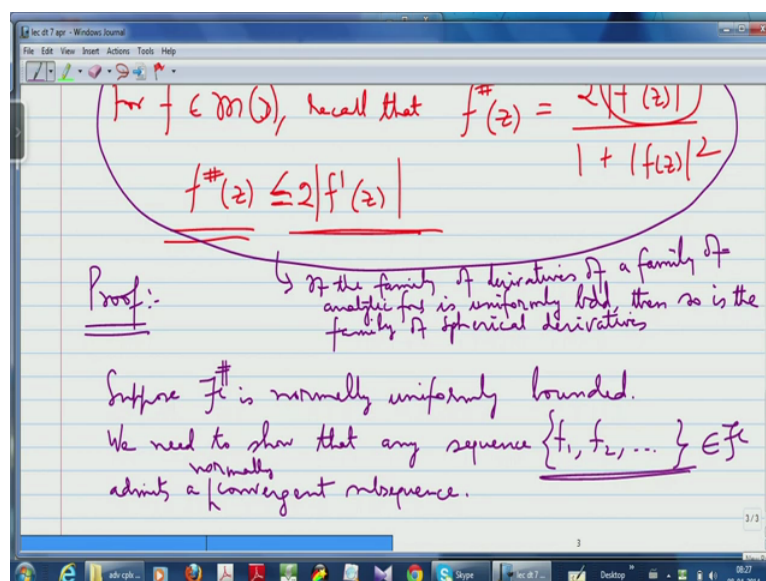 lec dt 7 apr - Windows Journal
File Edit View Insert Actions Tools Help
For f ∈ m( ), recall that f^#(z) = 2|f'(z)| / 1 + |f(z)|^2
f^#(z) ≤ 2|f'(z)|
↳ If the family of derivatives of a family of
analytic fns is uniformly bdd, then so is the
family of spherical derivatives
Proof:-
Suppose F^# is normally uniformly bounded.
We need to show that any sequence {f_1, f_2, ...} ∈ F
admits a normally convergent subsequence.
3/3
3
adv cplx ...
Skype
lec dt 7 ...
Desktop
08:27